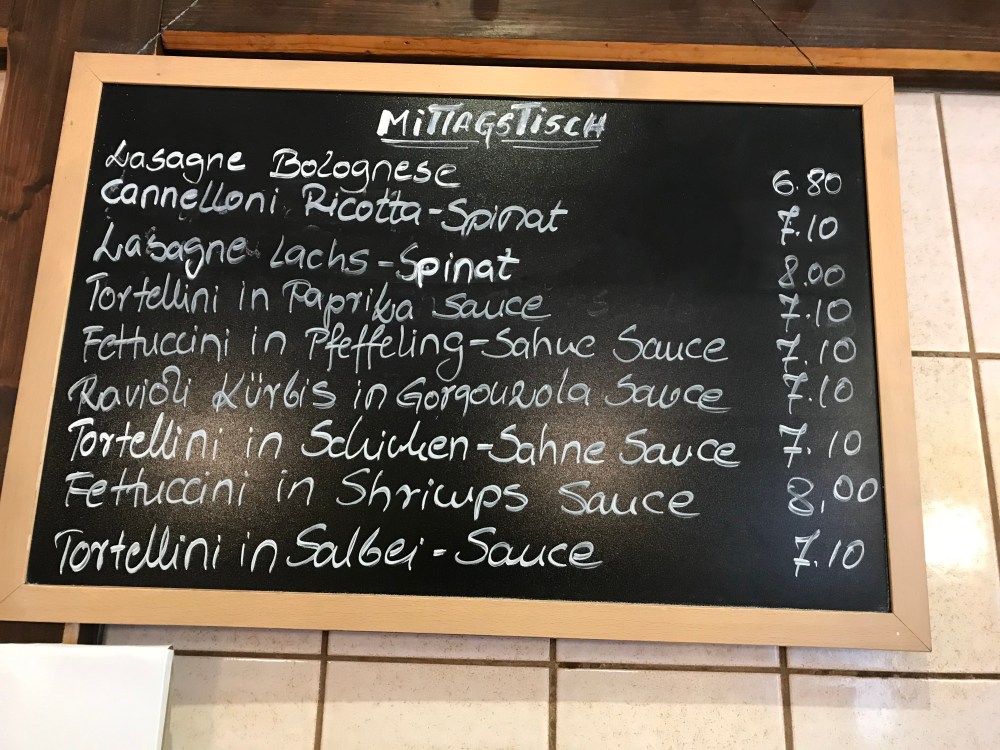 MITTAGSTISCH
Lasagne Bolognese 6.80
Cannelloni Ricotta-Spinat 7.10
Lasagne Lachs-Spinat 8.00
Tortellini in Paprika Sauce 7.10
Fettuccini in Pfefferling-Sahne Sauce 7.10
Ravioli Kürbis in Gorgonzola Sauce 7.10
Tortellini in Schicken-Sahne Sauce 7.10
Fettuccini in Shrimps Sauce 8,00
Tortellini in Salbei-Sauce 7.10